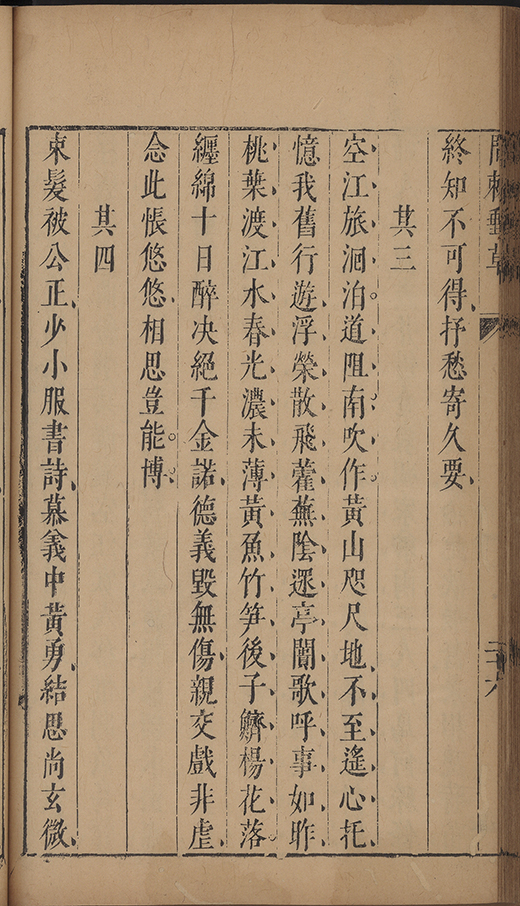 終知不可得抒愁寄久要
其三
空江旅洄泊道阻南吹作黃山咫尺地不至遙心托
憶我舊行遊浮榮散飛藿蕪陰還亭闇歌呼事如昨
桃葉渡江水春光濃未薄黃魚竹笋後子鱭楊花落
纏綿十日醉决絕千金諾德義毀無傷親交戲非虐
念此悵悠悠相思豈能博
其四
束髮被公正少小服書詩慕義中黃勇結思尚玄微